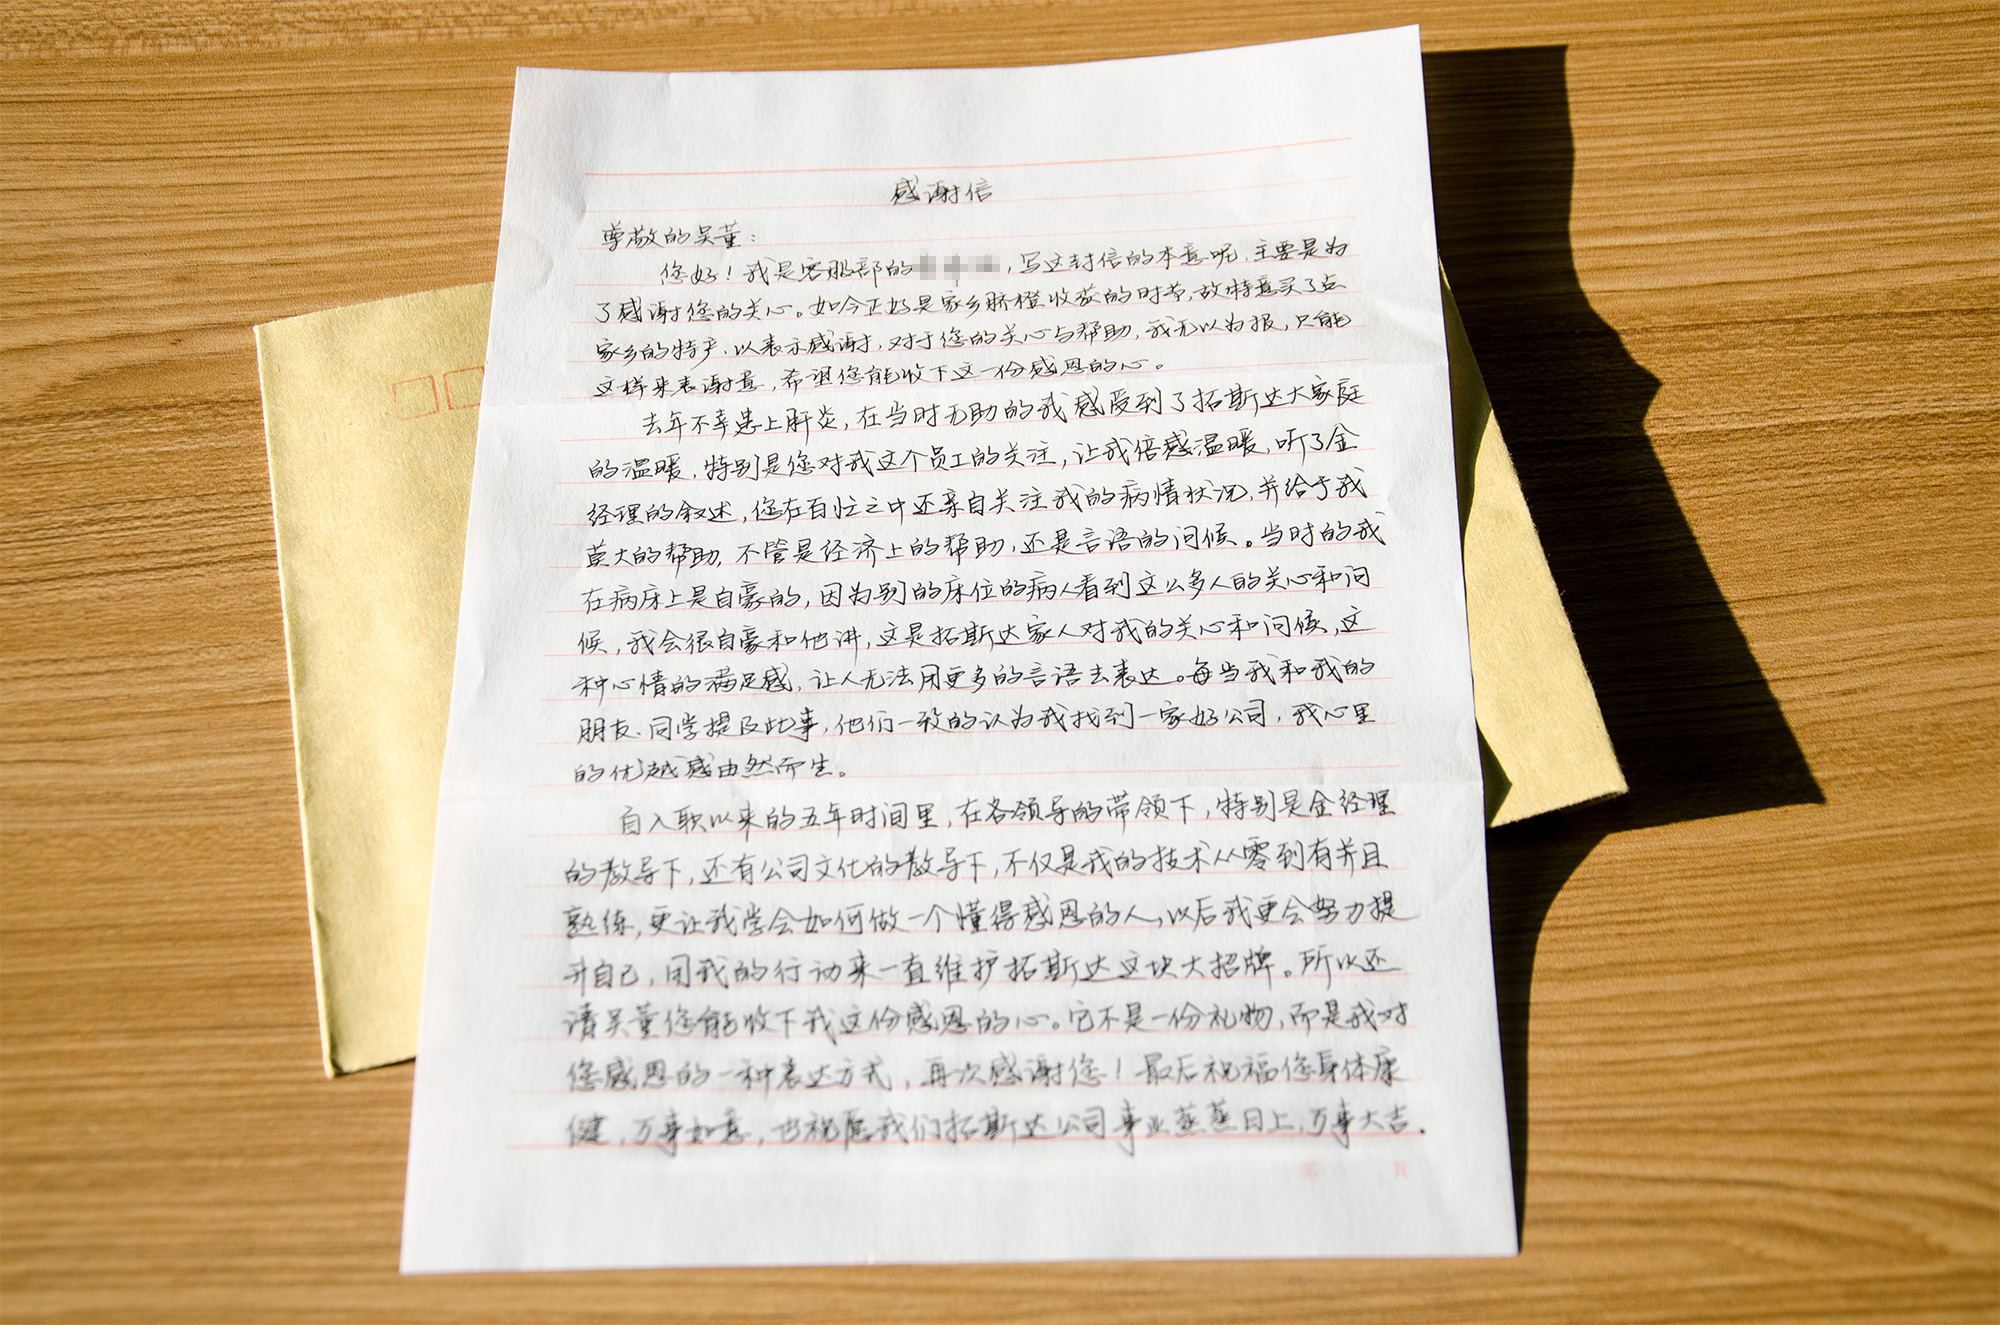 感谢信
尊敬的吴董：
您好！我是客服部的，写这封信的本意呢，主要是为
了感谢您的关心。如今正好是家乡脐橙收获的时节，故特意买了点
家乡的特产，以表示感谢，对于您的关心与帮助，我无以为报，只能
这样来表谢意，希望您能收下这一份感恩的心。
去年不幸患上肝炎，在当时无助的我感受到了拓斯达大家庭
的温暖，特别是您对我这个员工的关注，让我倍感温暖，听了金
经理的叙述，您在百忙之中还亲自关注我的病情状况，并给于我
莫大的帮助，不管是经济上的帮助，还是言语的问候。当时的我
在病床上是自豪的，因为别的床位的病人看到这么多人的关心和问
候，我会很自豪和他讲，这是拓斯达家人对我的关心和问候，这
种心情的满足感，让人无法用更多的言语去表达。每当我和我的
朋友、同学提及此事，他们一致的认为我找到一家好公司，我心里
的优越感由然而生。
自入职以来的五年时间里，在各领导的带领下，特别是金经理
的教导下，还有公司文化的教导下，不仅是我的技术从零到有并且
熟练，更让我学会如何做一个懂得感恩的人，以后我更会努力提
升自己，用我的行动来一直维护拓斯达这块大招牌。所以还
请吴董您能收下我这份感恩的心。它不是一份礼物，而是我对
您感恩的一种表达方式，再次感谢您！最后祝福您身体康
健，万事如意，也祝愿我们拓斯达公司事业蒸蒸日上，万事大吉.
第 页